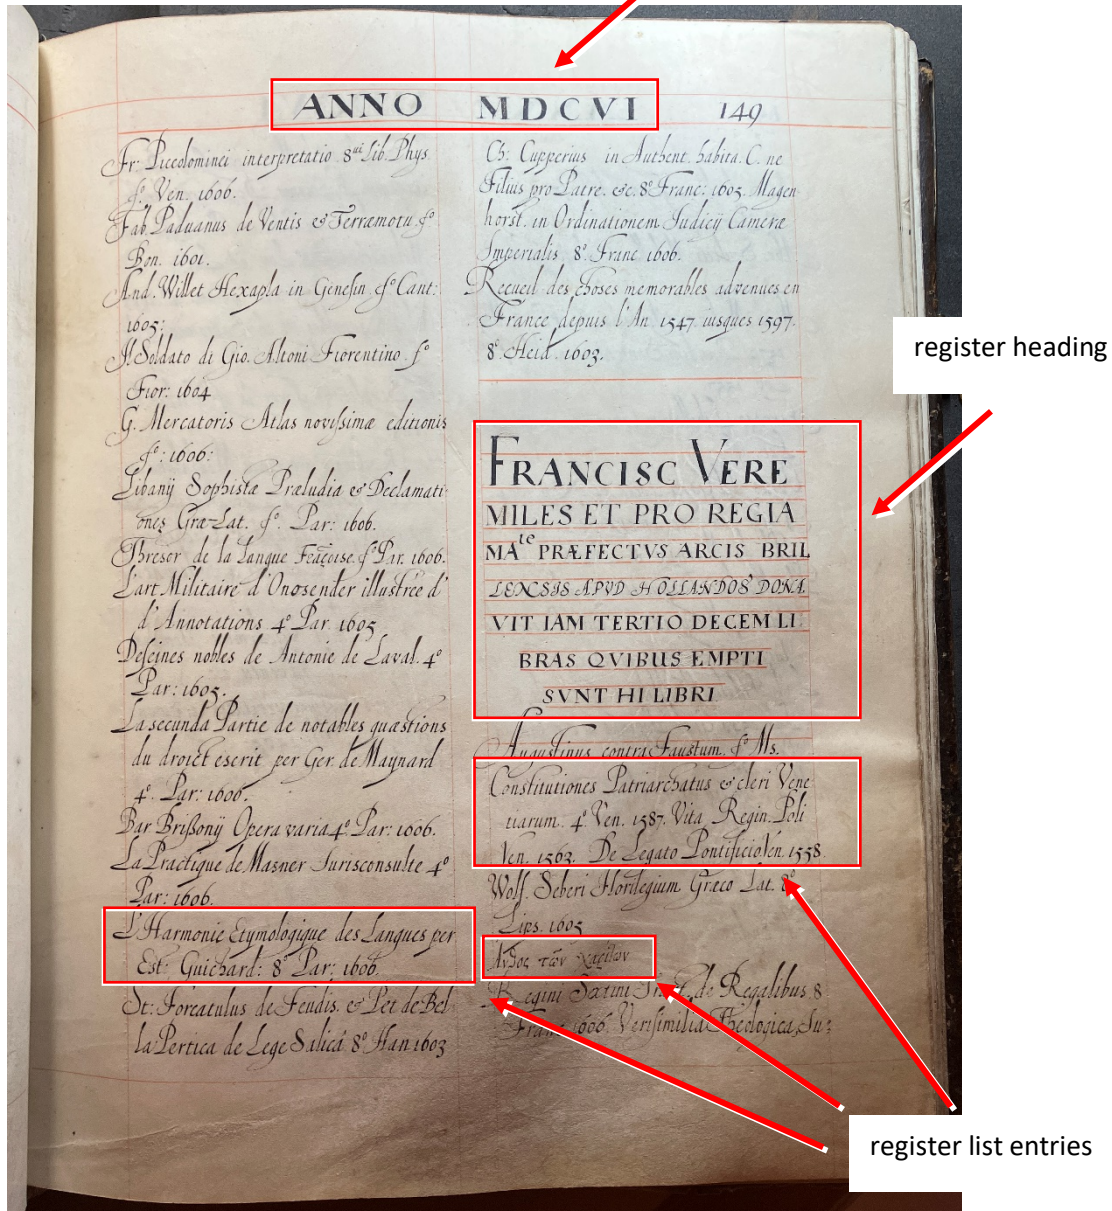 ANNO MDCVI 149
Fr: Piccolominei interpretatio 8ui lib. Phys.
fo. Ven. 1606.
Fab. Paduanus de Ventis & Terræmotu. fo
Bon. 1601.
And. Willet Hexapla in Genesin. fo Cant:
1605:
Il Soldato di Gio. Altoni Fiorentino. fo
Fior: 1604
G. Mercatoris Atlas novissimæ editionis
fo: 1606:
Libanij Sophistæ Præludia & Declamati-
ones Græ-Lat. fo. Par: 1606.
Thresor de la Langue fo Par. 1606.
L'art Militaire d'Onosender illustrée d'
d'Annotations 4o Par. 1605
Deseines nobles de Antonie de Laval. 4o
Par: 1605.
La secunda Partie de notables quæstions
du droict escrit per Ger. de Maynard
4o. Par: 1606.
Bar. Brissonij Opera varia 4o Par: 1606.
La Practique de Masner Jurisconsulte 4o
Par: 1606.
L'Harmonie Etymologique des Langues per
Est: Guichard: 8o Par: 1606.
St: Forcatulus de Feudis. & Pet de Bel
la Pertica de Lege Salicâ 8o Han 1603
Ch: Cupperius in Authent. habita. C. ne
Filius pro Patre. &c. 8o Franc: 1605. Magen
horst. in Ordinationem Judicij Cameræ
Imperialis. 8o. Franc 1606.
Recueil des choses memorables advenues en
France depuis l'An 1547 iusques 1597.
8o. Heid. 1603.
FRANCISC VERE
MILES ET PRO REGIA
MAte PRÆFECTVS ARCIS BRIL
LENSIS APVD HOLLANDOS DONA
VIT IAM TERTIO DECEM LI
BRAS QVIBUS EMPTI
SVNT HI LIBRI
Augustinus contra Faustum. fo Ms.
Constitutiones Patriarchatus & cleri Vene
tiarum. 4o Ven. 1587. Vita Regin. Poli
Ven. 1563. De Legato Pontificio Ven. 1558.
Wolf. Seberi Florilegium Græco Lat. 8o
Lips. 1605
Ανθος τῶν χαρίτων
Regini Sixtini de Regalibus 8
Franc 1606. Verisimilia Theologica, Ju:
register heading
register list entries